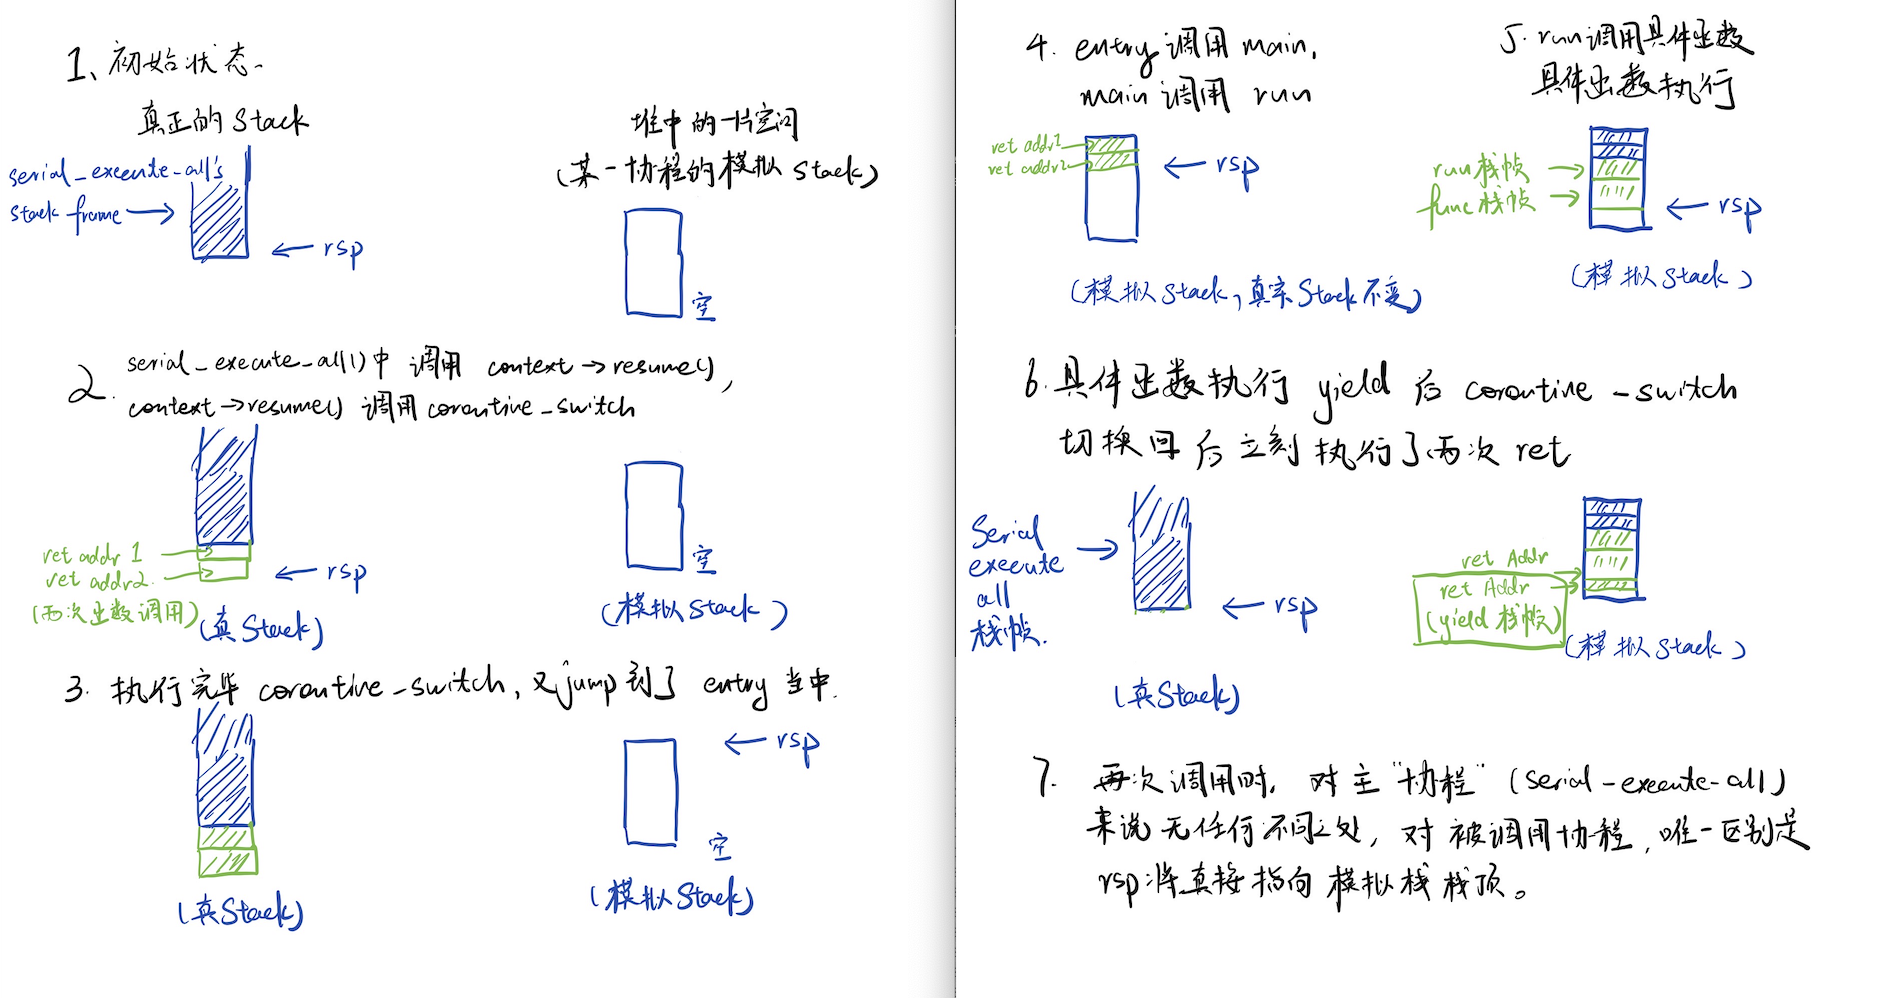 1、初始状态.
真正的 Stack
堆中的一片空间
(某一协程的模拟 Stack)
serial_execute-all's
stack frame
rsp
空
2. serial_execute_all()中 调用 context→resume(),
context→resume() 调用 coroutine_switch
ret addr 1
ret addr2.
(两次函数调用)
rsp
(真 Stack)
空
(模拟 Stack)
3. 执行完毕 coroutine_switch, 又jump 到了 entry 当中.
rsp
空
(真Stack)
(模拟 Stack)
4. entry 调用 main,
main 调用 run
ret addr1
ret addr2
rsp
(模拟 Stack, 真实 Stack 不变)
5. run 调用具体函数
具体函数执行
run 栈帧
func 栈帧
rsp
(模拟 Stack)
6. 具体函数执行 yield 后 coroutine _switch
切换回后立刻执行了两次 ret
Serial
execute
all
栈帧.
rsp
(真Stack)
ret Addr
ret Addr
(yield 栈帧)
(模拟 Stack)
7. 再次调用时, 对主 "协程" (serial-execute-all)
来说无任何不同之处, 对被调用协程, 唯一区别是
rsp 将直接指向 模拟栈 栈顶。